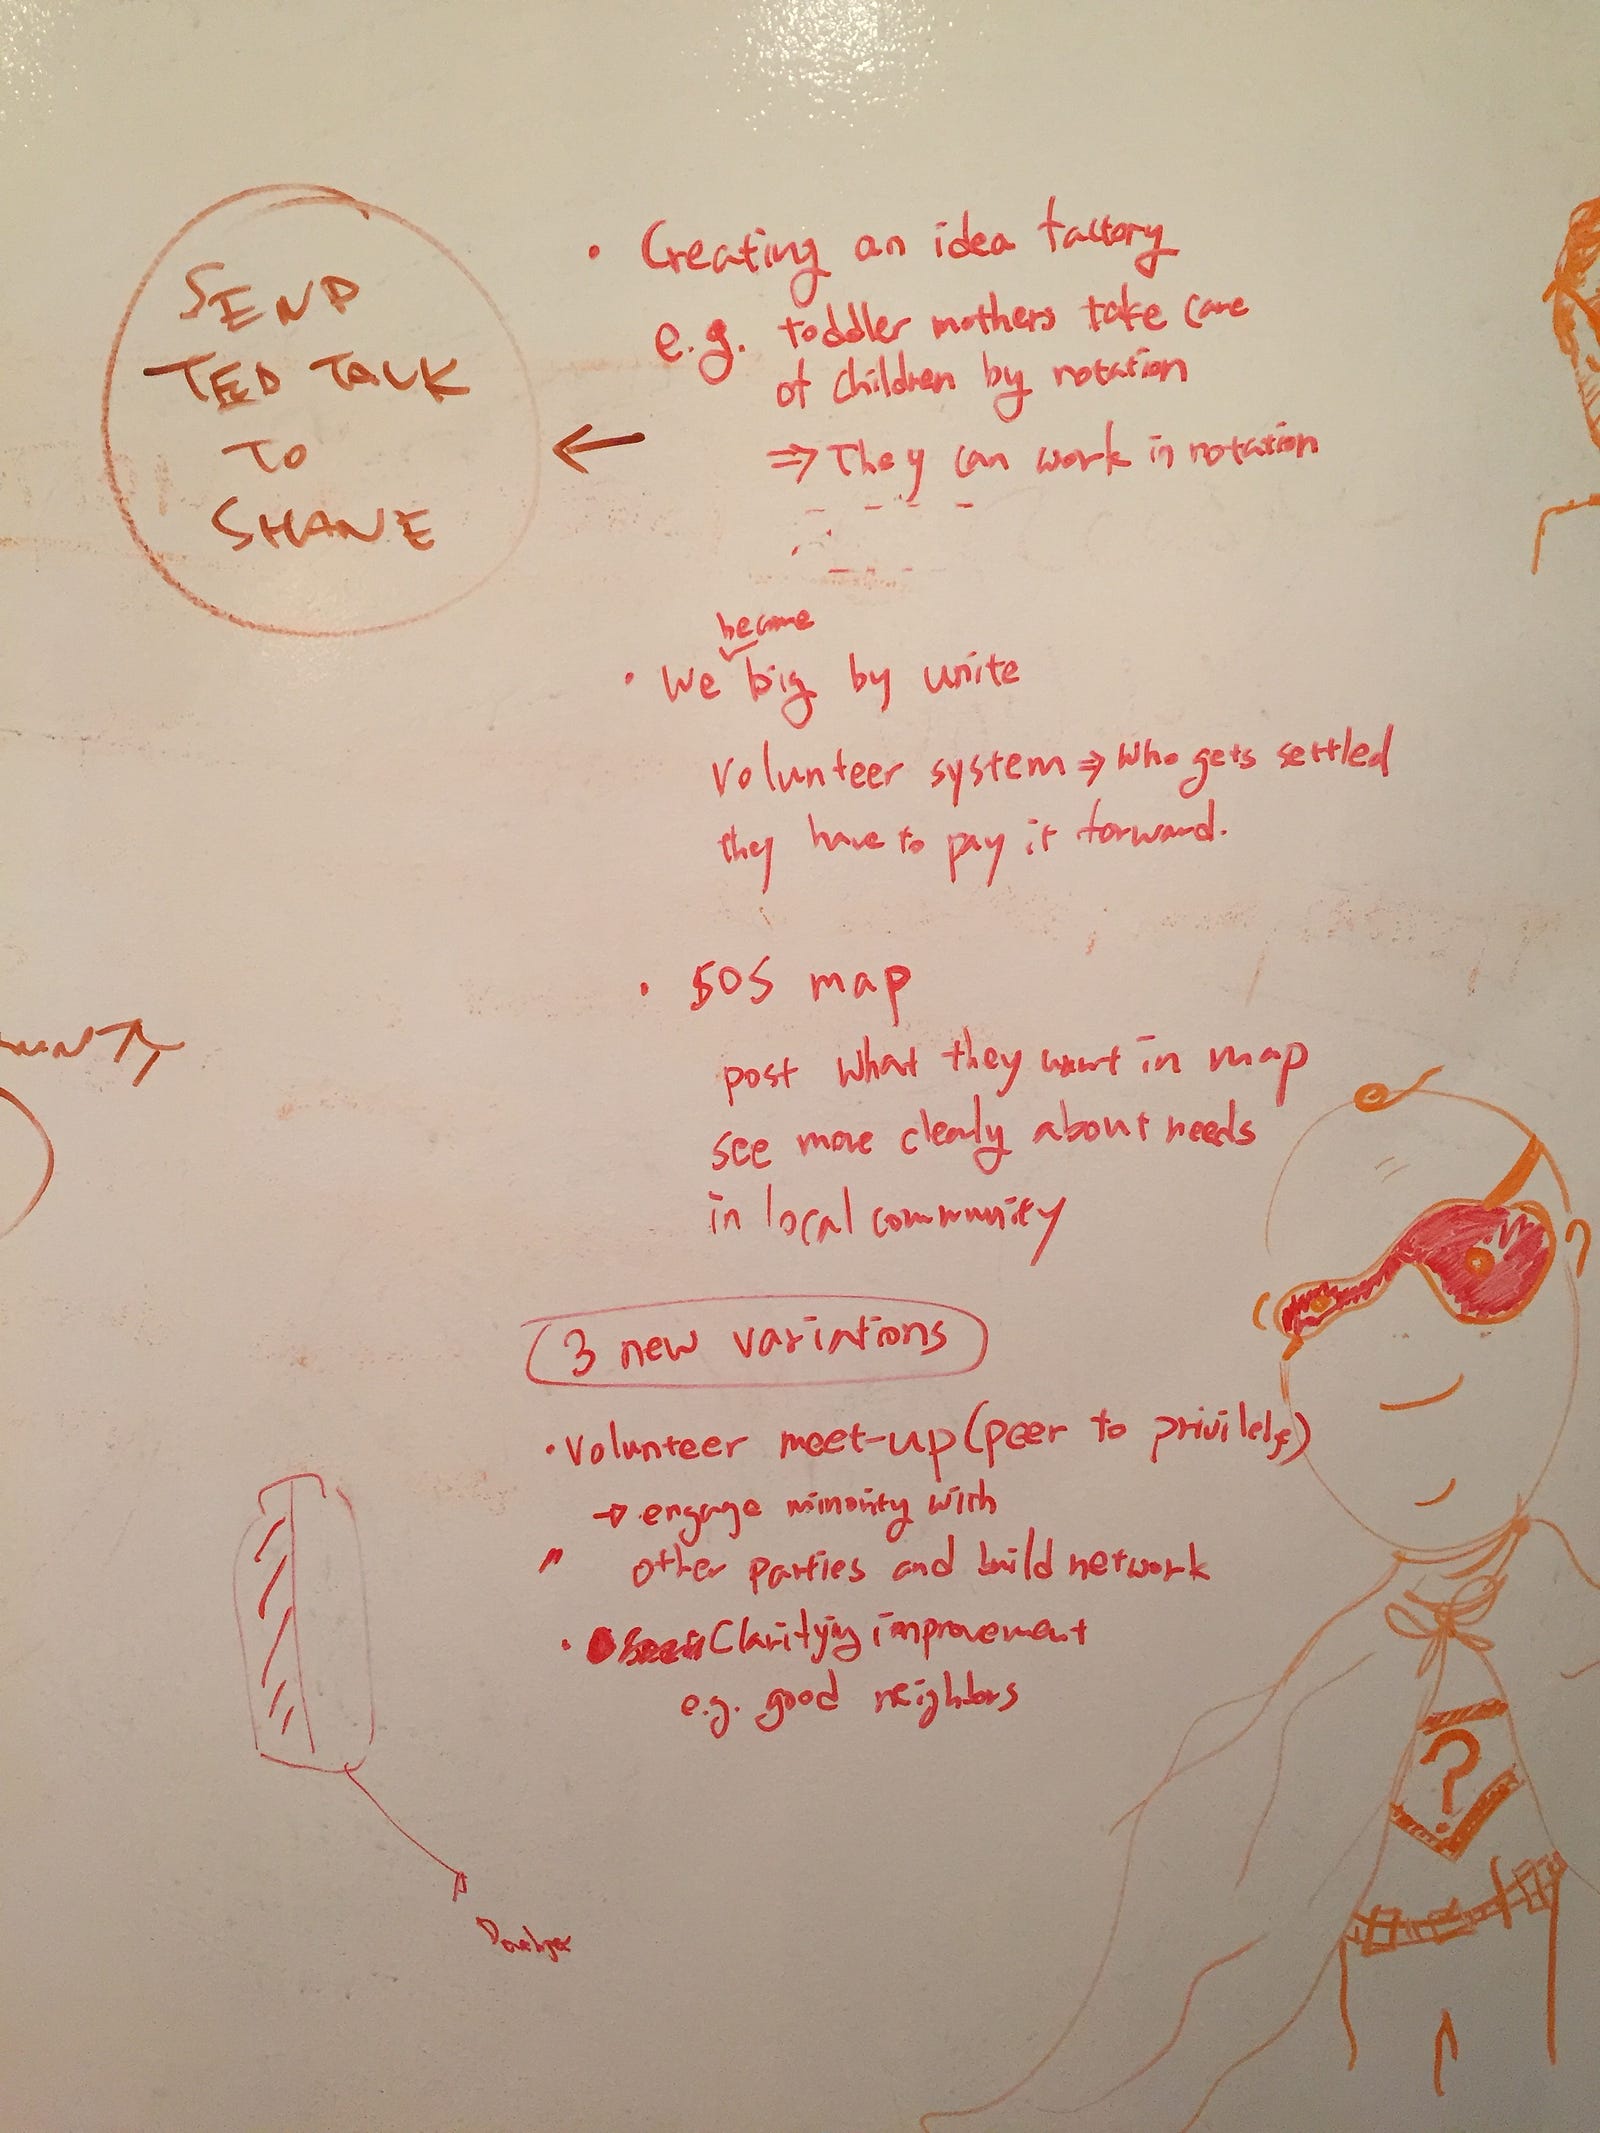 SEND
TED TALK
TO
SHANE
←
• Creating an idea factory
e.g. toddler mothers take care
of children by rotation
⇒ They can work in rotation
become
• We big by unite
volunteer system ⇒ Who gets settled
they have to pay it forward.
• SOS map
post what they want in map
see more clearly about needs
in local community
3 new variations
• Volunteer meet-up (peer to privilege)
→ engage minority with
" other parties and build network
• Clarifying improvement
e.g. good neighbors
?